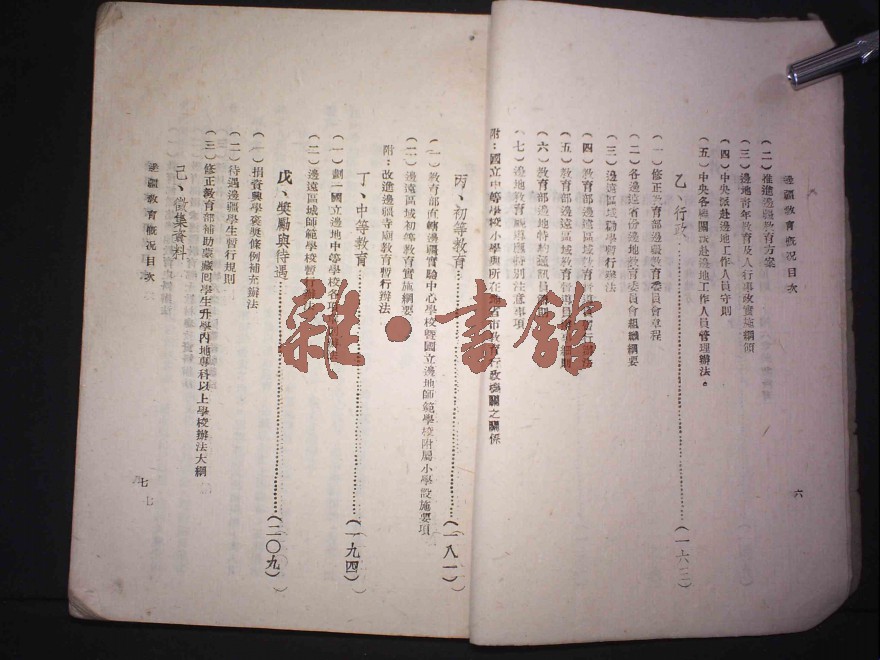 邊疆教育概況目次
(二)推進邊疆教育方案
(三)邊地青年教育及人事行政實施綱領
(四)中央派赴邊地工作人員守則
(五)中央各機關派赴邊地工作人員管理辦法。
乙、行政……(一六三)
(一)修正教育部邊疆教育委員會章程
(二)各邊遠省份邊地教育委員會組織綱要
(三)邊遠區域勸學暫行辦法
(四)教育部邊遠區域教育督導員暫行辦法
(五)教育部邊遠區域教育督導員
(六)教育部邊地特約通訊員
(七)邊地教育視導應特別注意事項
附:國立中等學校小學與所在地省市教育行政機關之關係
六
丙、初等教育……(一八一)
(一)教育部直轄邊疆實驗中心學校暨國立邊地師範學校附屬小學設施要項
(二)邊遠區域初等教育實施綱要
附:改進邊疆寺廟教育暫行辦法
丁、中等教育……(一九四)
(一)劃一國立邊地中等學校各項
(二)邊遠區域師範學校暫行辦法
戊、獎勵與待遇……(二〇九)
(一)捐資興學褒獎條例補充辦法
(二)待遇邊疆學生暫行規則
(三)修正教育部補助蒙藏回學生升學內地專科以上學校辦法大綱
己、徵集資料
邊疆教育概況目次
七
雜·書館